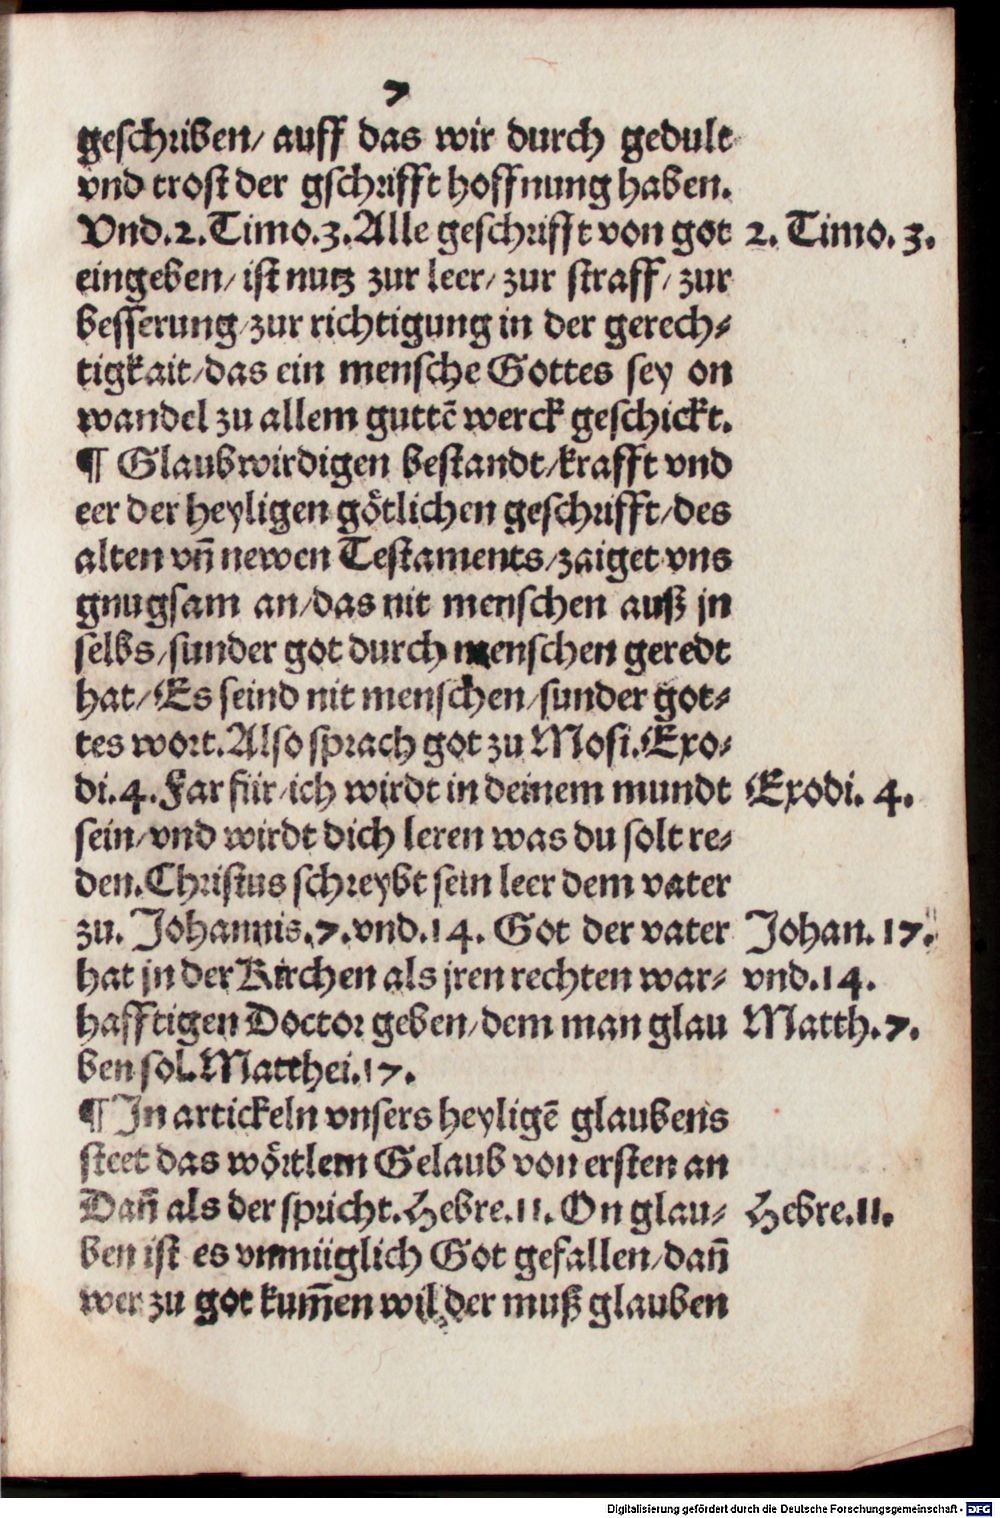 7
geschriben/ auff das wir durch gedult
vnd trost der gschrifft hoffnung haben.
Vnd.2.Timo.3.Alle geschrifft von got
2. Timo. 3.
eingeben/ ist nutz zur leer/ zur straff/ zur
besserung/ zur richtigung in der gerech⸗
tigkait/ das ein mensche Gottes sey on
wandel zu allem guttē werck geschickt.
¶ Glaubwirdigen bestandt/ krafft vnd
eer der heyligen götlichen geschrifft/ des
alten vn̄ newen Testaments/ zaiget vns
gnugsam an/ das nit menschen auß jn
selbs/ sunder got durch menschen geredt
hat/ Es seind nit menschen/ sunder got⸗
tes wort.Also sprach got zu Mosi.Exo⸗
di.4.Far für/ ich wirdt in deinem mundt
Exodi. 4.
sein/ vnd wirdt dich leren was du solt re⸗
den.Christus schreybt sein leer dem vater
zu. Johannis.7.vnd.14. Got der vater
Johan. 17.
hat jn der Kirchen als jren rechten war⸗
vnd.14.
hafftigen Doctor geben/ dem man glau
Matth.7.
ben sol.Matthei.17.
¶ In artickeln vnsers heyligē glaubens
steet das wörtlem Gelaub von ersten an
Dan̄ als der spricht.Hebre.11. On glau⸗
Hebre.11.
ben ist es vnmüglich Got gefallen/ dan̄
wer zu got kum̄en wil der muß glauben
Digitalisierung gefördert durch die Deutsche Forschungsgemeinschaft - DFG